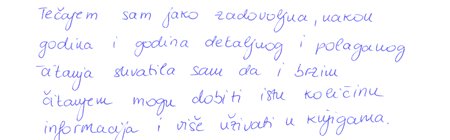 Tečajem sam jako zadovoljna, nakon
godina i godina detaljnog i polaganog
čitanja shvatila sam da i brzim
čitanjem mogu dobiti istu količinu
informacija i više uživati u knjigama.